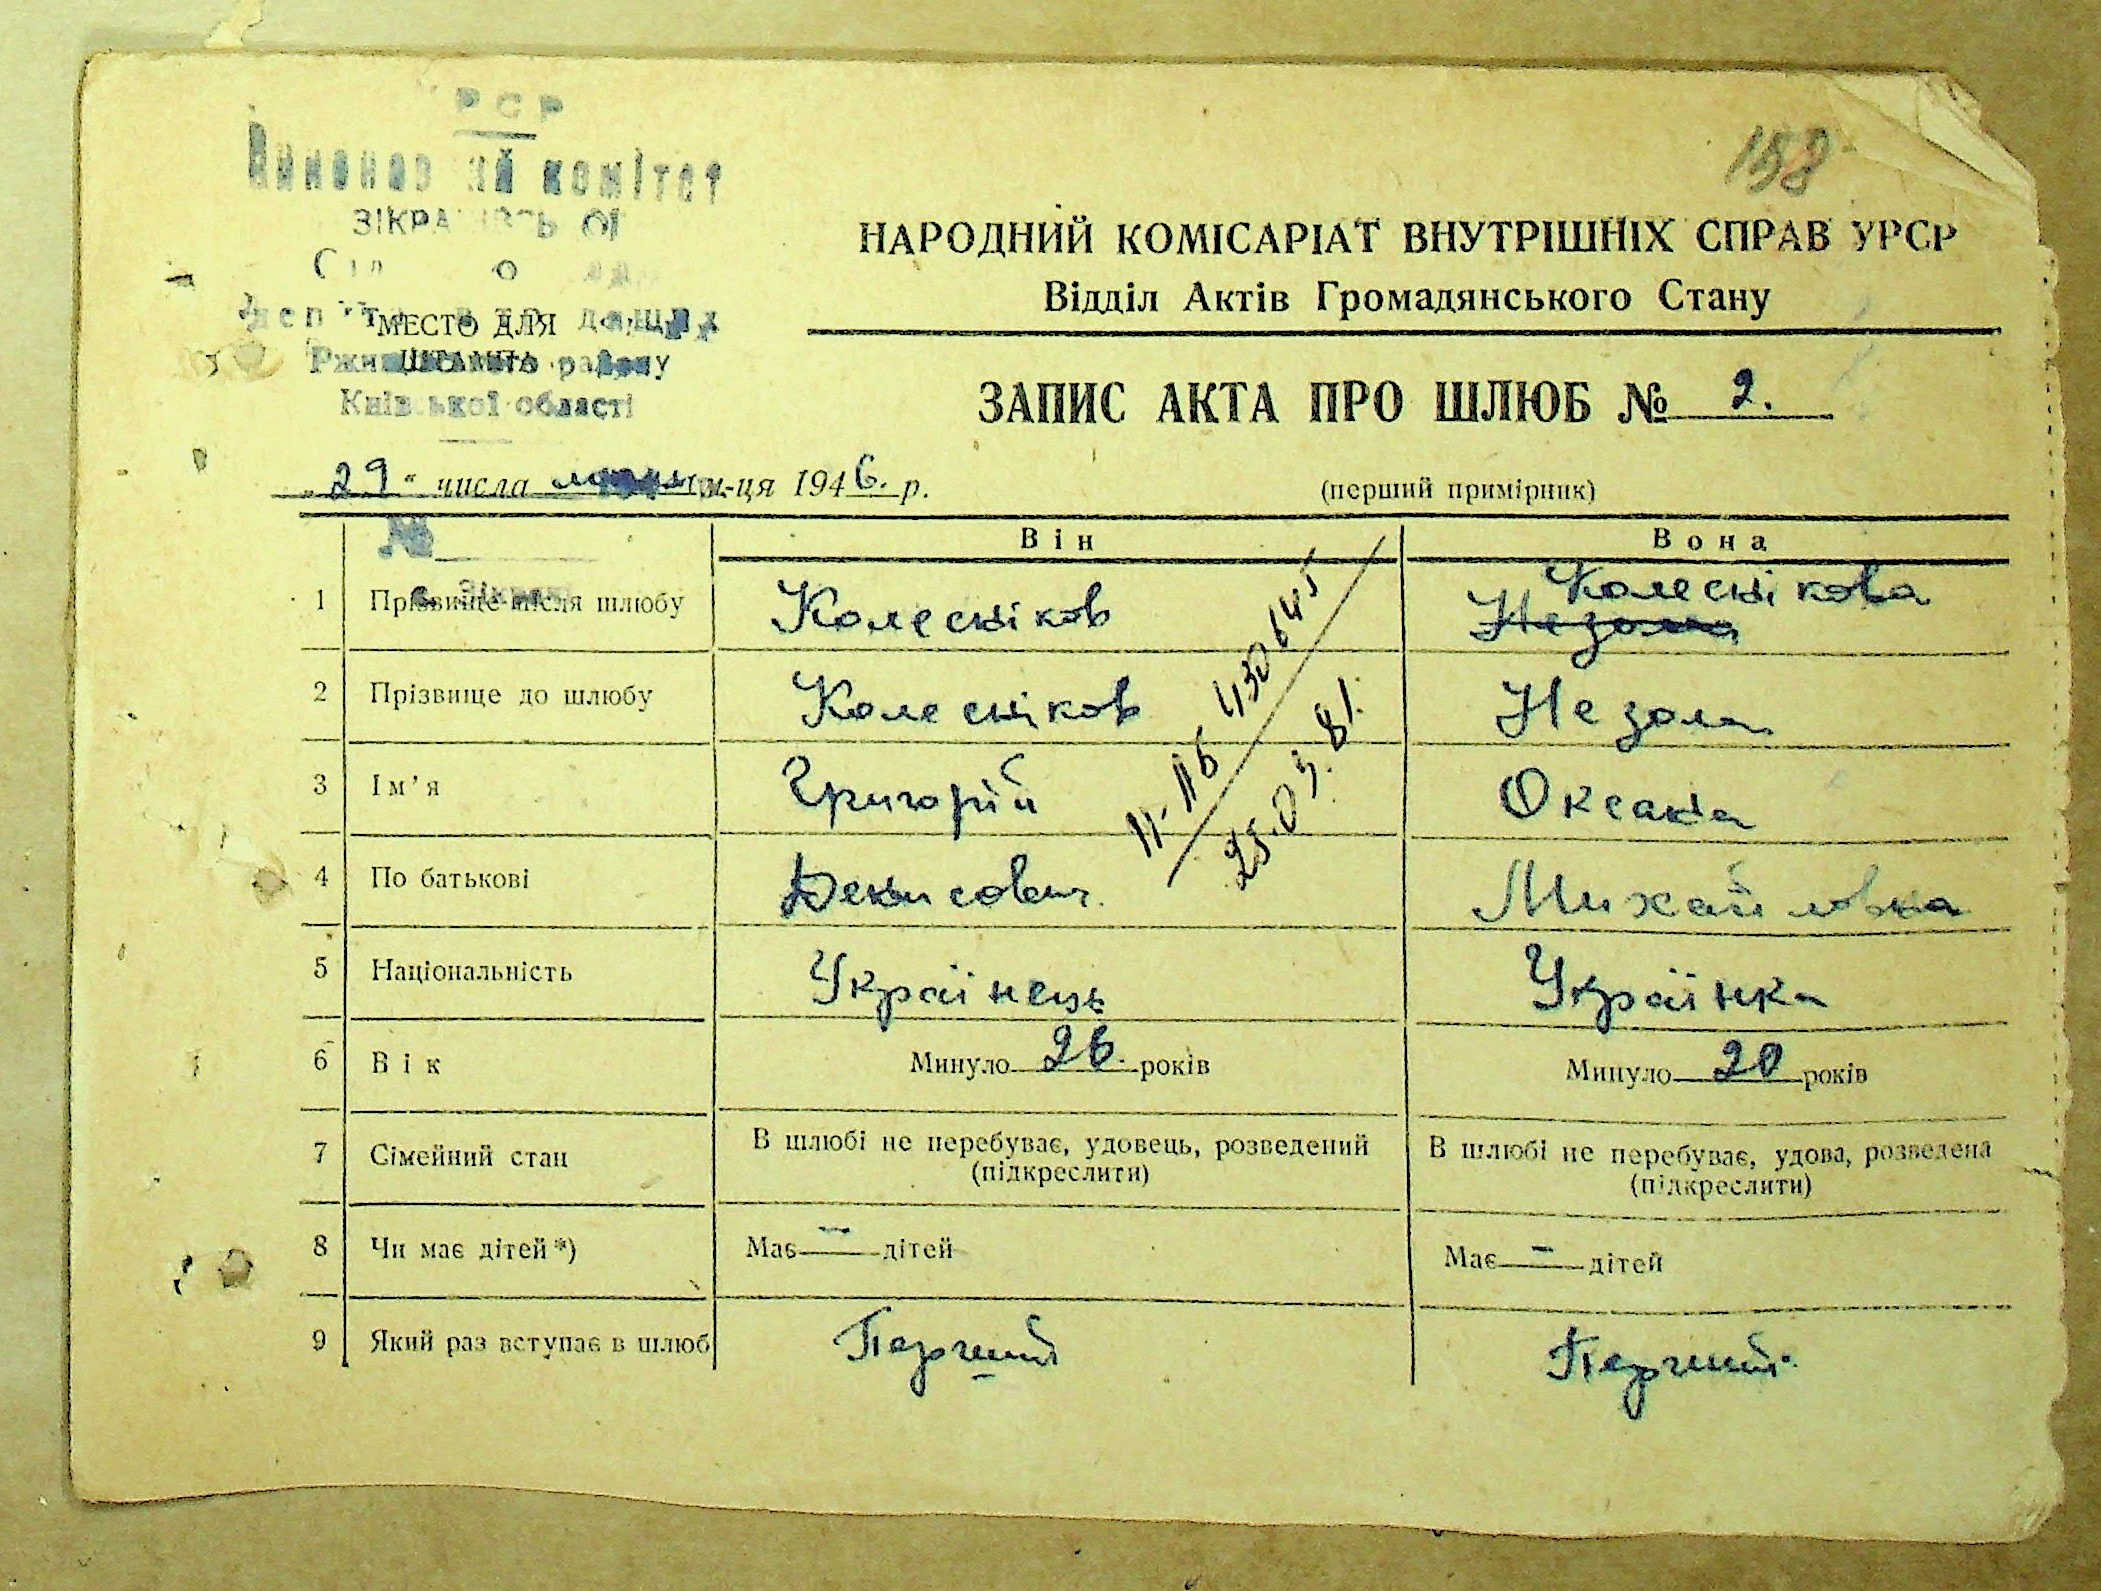 РСР
комітет
158
НАРОДНИЙ КОМІСАРІАТ ВНУТРІШНІХ СПРАВ УРСР
Відділ Актів Громадянського Стану
МЕСТО ДЛЯ
ШТАМПА
району
Київської області
ЗАПИС АКТА ПРО ШЛЮБ № 2.
„29“ числа м-ця 1946. р.
(перший примірник)
№
Він Вона
Колеснікова
1 Прізвище після шлюбу Колесніков Незола
2 Прізвище до шлюбу Колесніков Незола
3 Ім'я Григорій Оксана
4 По батькові Денисович Михайловна
5 Національність Українець Українка
6 Вік Минуло 26. років Минуло 20 років
7 Сімейний стан В шлюбі не перебуває, удовець, розведений В шлюбі не перебуває, удова, розведена
(підкреслити) (підкреслити)
8 Чи має дітей*) Має — дітей Має — дітей
9 Який раз вступає в шлюб Перший Перший.
430645
25.03.81.